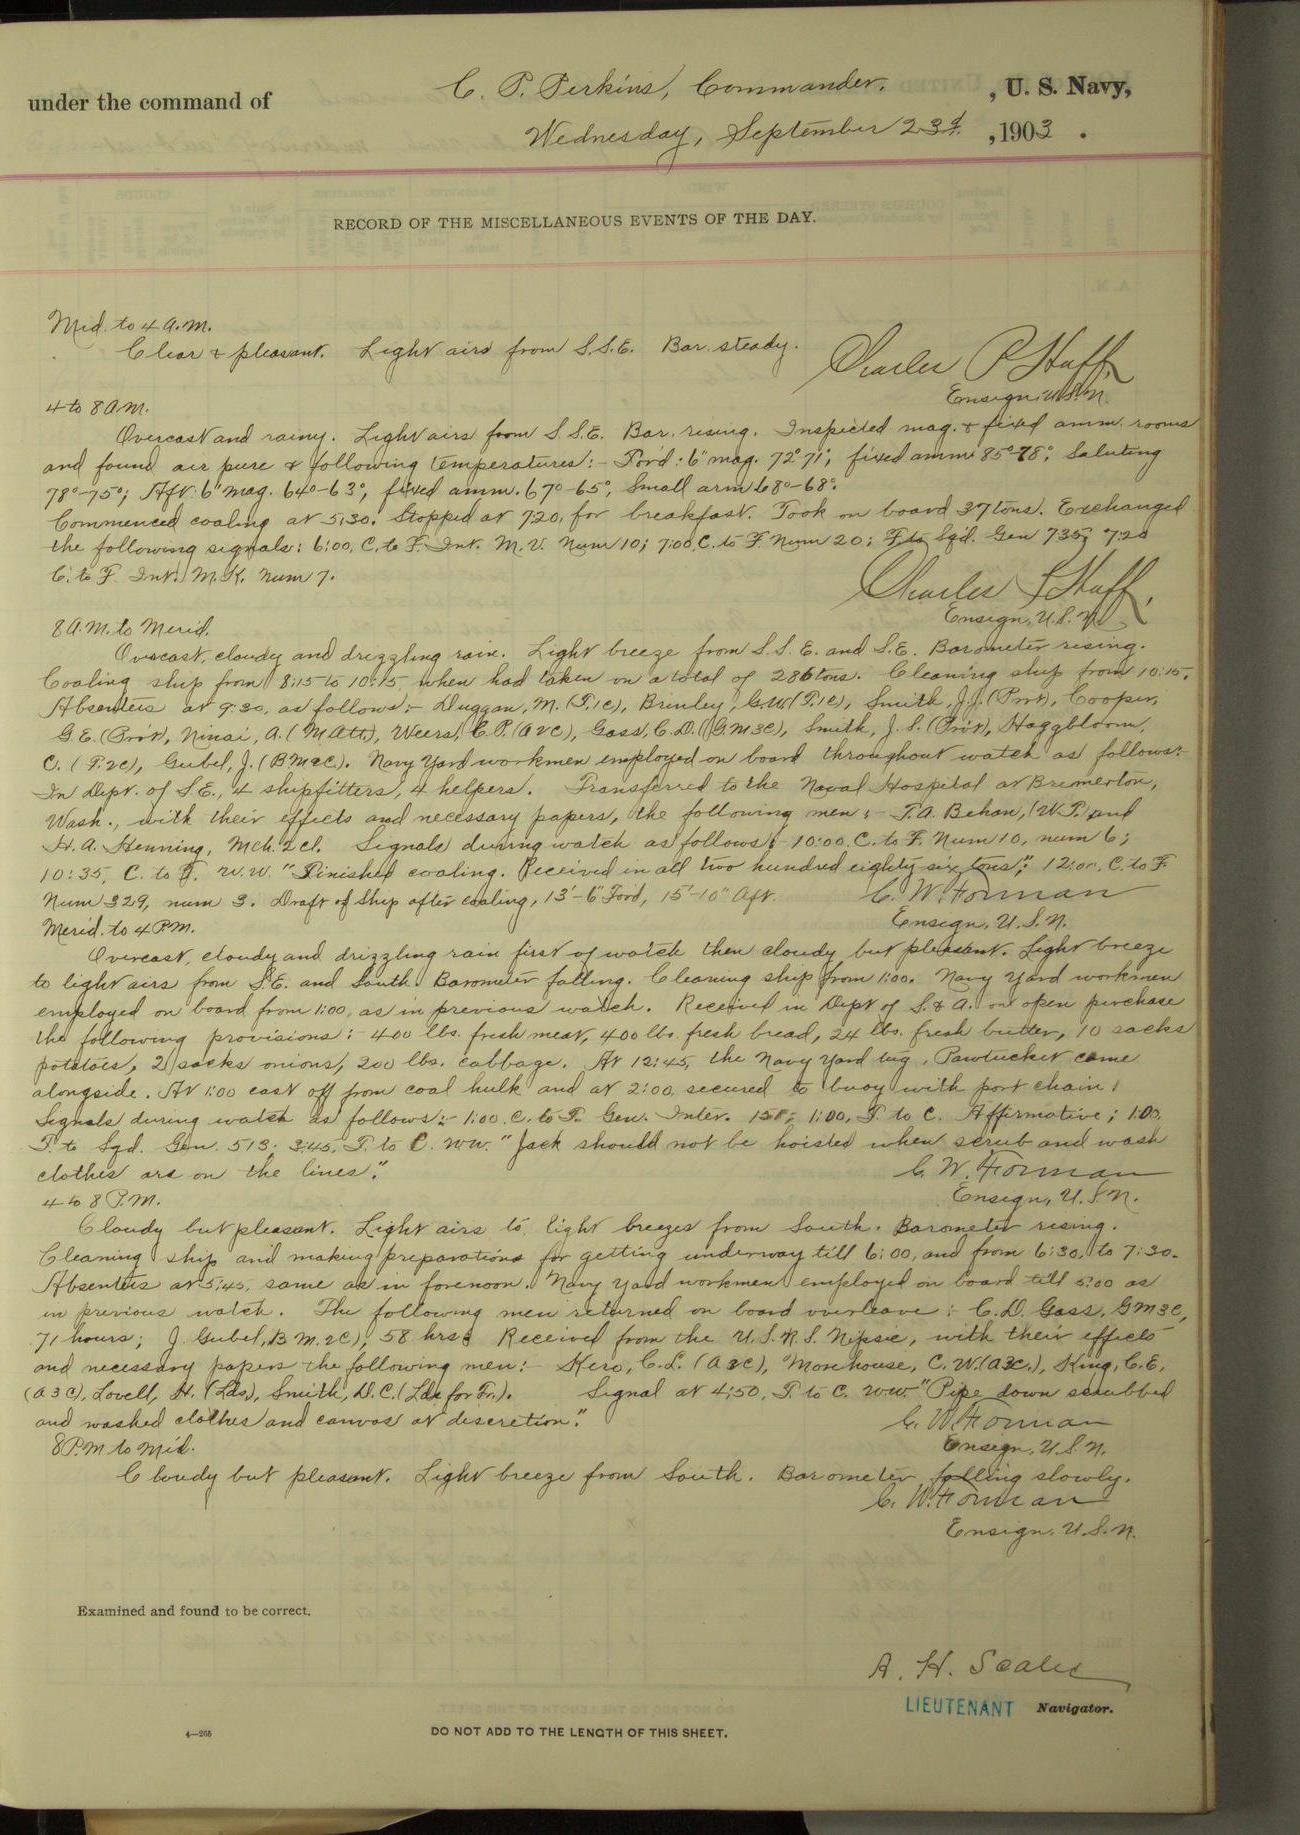 under the command of C. P. Perkins, Commander, , U. S. Navy,
Wednesday, September 23d. , 1903 .
RECORD OF THE MISCELLANEOUS EVENTS OF THE DAY.
Mid. to 4 A.M.
Clear & pleasant. Light airs from S.S.E. Bar. steady.
Charles P Huff,
Ensign, U.S.N.
4 to 8 A.M.
Overcast and rainy. Light airs from S.S.E. Bar. rising. Inspected mag. & fixed amm. rooms
and found air pure & following temperatures:- Ford: 6" mag. 72° 71°; fixed amm. 85°-78°; Saluting
78°-75°; Aft: 6" mag. 64°-63°, fixed amm. 67°-65°, Small arm 68°-68°.
Commenced coaling at 5:30. Stopped at 7:20, for breakfast. Took on board 37 tons. Exchanged
the following signals: 6:00, C. to F. Int. M.V. Num 10; 7:00 C. to F. Num 20; F. to Sqd. Gen 735; 7:20
C. to F. Int. M.K. Num 7.
Charles P Huff,
Ensign, U.S.N.
8 A.M. to Merid.
Overcast, cloudy and drizzling rain. Light breeze from S.S.E. and S.E. Barometer rising.
Coaling ship from 8:15 to 10:15, when had taken on a total of 286 tons. Cleaning ship from 10:15.
Absentees at 9:30, as follows:- Duggan, M. (F.1c), Brinley, G.W. (F.1c), Smith, J.J. (Prvt), Cooper,
G.E. (Prvt), Ninai, A. (M.Att.), Weers, C.P. (A2C), Gass, C.D. (G.M3C), Smith, J.S. (Prvt), Haggblom,
C. (F.2C), Gubel, J. (BM2C). Navy Yard workmen employed on board throughout watch as follows:-
In Dept. of S.E., 4 shipfitters, 4 helpers. Transferred to the Naval Hospital at Bremerton,
Wash., with their effects and necessary papers, the following men:- F.A. Behan, (W.T.) and
H.A. Henning, Mch. 2cl. Signals during watch as follows:- 10:00, C. to F. Num 10, num 6;
10:35, C. to F. W.W. "Finished coaling. Received in all two hundred eighty-six tons"; 12:00, C. to F.
Num 329, num 3. Draft of ship after coaling, 13'-6" Ford, 15'-10" Aft.
C. W. Forman
Ensign, U.S.N.
Merid. to 4 P.M.
Overcast, cloudy and drizzling rain first of watch then cloudy but pleasant. Light breeze
to light airs from S.E. and South. Barometer falling. Cleaning ship from 1:00. Navy Yard workmen
employed on board from 1:00, as in previous watch. Received in Dept of S. & A. on open purchase
the following provisions: 400 lbs. fresh meat, 400 lbs. fresh bread, 24 lbs. fresh butter, 10 sacks
potatoes, 2 sacks onions, 200 lbs. cabbage. At 12:45, the Navy Yard tug, Pawtucket came
alongside. At 1:00 cast off from coal hulk and at 2:00, secured to buoy with port chain.
Signals during watch as follows:- 1:00, C. to F. Gen. Inter. 158; 1:00, F. to C. Affirmative; 1:00,
F. to Sqd. Gen. 513; 3:45, F. to C. W.W. "Jack should not be hoisted when scrub and wash
clothes are on the lines".
C. W. Forman
Ensign, U.S.N.
4 to 8 P.M.
Cloudy but pleasant. Light airs to light breezes from South. Barometer rising.
Cleaning ship and making preparations for getting underway till 6:00, and from 6:30, to 7:30.
Absentees at 5:45, same as in forenoon. Navy Yard workmen employed on board till 5:00 as
in previous watch. The following men returned on board overleave:- C.D. Gass, GM3C,
71 hours; J. Gubel, B.M.2C), 58 hrs. Received from the U.S.R.S. Nipsic, with their effects
and necessary papers the following men:- Kero, C.L. (A3C), Morehouse, C.W. (A3C.), King, C.E.
(A3C), Lovell, H. (Lds), Smith, D.C. (Lds for Fr.). Signal at 4:50, F. to C. W.W. "Pipe down scrubbed
and washed clothes and canvas at discretion."
C. W. Forman
Ensign, U.S.N.
8 P.M to Mid.
Cloudy but pleasant. Light breeze from South. Barometer falling slowly.
C. W. Forman
Ensign, U.S.N.
Examined and found to be correct.
A. H. Scales
LIEUTENANT Navigator.
4—265
DO NOT ADD TO THE LENGTH OF THIS SHEET.